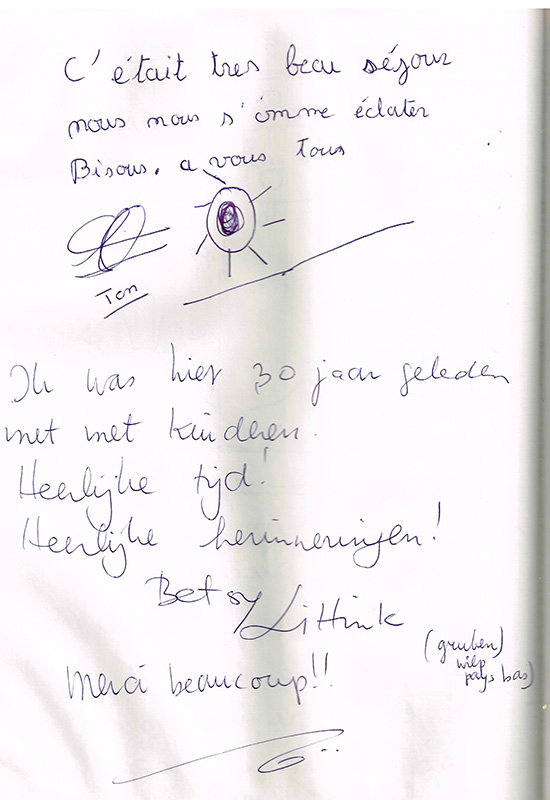 C'était tres beau séjour
nous nous s'omme éclater
Bisous, a vous tous
Tom
Ik was hier 30 jaar geleden
met met kinderen.
Heerlijke tijd!
Heerlijke herinneringen!
Betsy Littink
(gruben)
wilp
pays bas)
Merci beaucoup!!